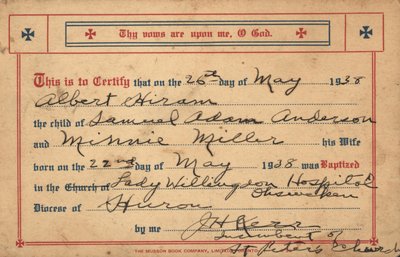 Thy vows are upon me, O God.
This is to Certify that on the 26th day of May 1938
Albert Hiram
the child of Samuel Adam Anderson
and Minnie Miller his Wife
born on the 22nd day of May 1938 was Baptized
in the Church of Lady Willingdon Hospital
Ohsweken
Diocese of Huron
by me JH Kerr
Incumbent of
St. Peters Church
THE MUSSON BOOK COMPANY, LIMITED